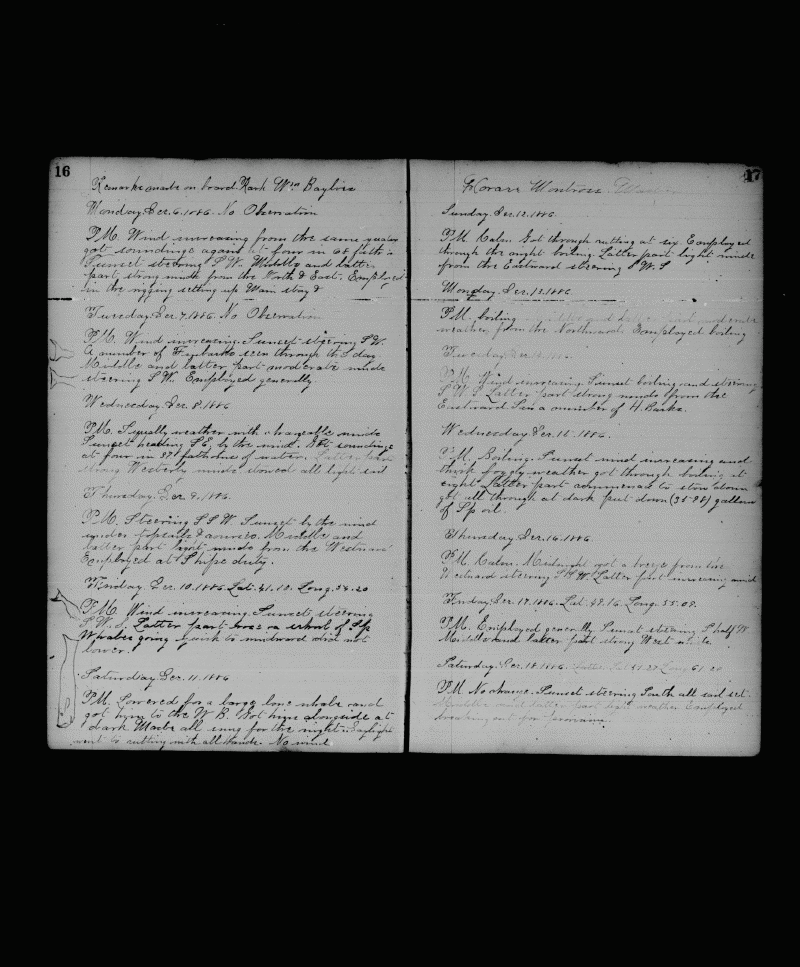 16
Remarks made on board Bark Wm Baylies
Monday Dec. 6. 1886. No Observation
P.M. Wind increasing from the same quarter
got soundings again at four in 68 fath's
Sunset steering S W. Middle and latter
part strong winds from the North & East. Employed
in the rigging setting up Main stay &
Tuesday Dec. 7. 1886. No Observation
P.M. Wind increasing. Sunset steering S W.
A number of Finbacks seen through the day.
Middle and latter part moderate winds
steering S W. Employed generally
Wednesday Dec. 8. 1886
P.M. Squally weather with changeable winds
Sunset heading S E, by the wind. Got soundings
at four in fathoms of water. Latter part
strong Westerly winds stowed all light sail
Thursday. Dec 9. 1886.
P.M. Steering S S W. Sunset by the wind
under topsails & courses. Middle and
latter part light winds from the Westward
Employed at Ships duty.
Friday. Dec. 10. 1886 Lat. 41.10. Long. 54.20
P.M. Wind increasing. Sunset, steering
S W. S. Latter part saw a school of S/p
Whales going quick to windward did not
lower.
Saturday Dec. 11. 1886
P.M. Lowered for a large lone whale and
got him to the W. B. Got him alongside at
dark. Made all snug for the night. Daylight
went to cutting with all hands. No wind
17
Horace Montross Master
Sunday. Dec. 12. 1886.
P.M. Calm. Got through cutting at six. Employed
through the night boiling. Latter part light winds
from the Eastward steering S W. S
Monday. Dec. 13. 1886.
P.M. boiling and latter part moderate
weather, from the Northward. Employed boiling
Tuesday Dec 14. 1886.
P.M. Wind increasing. Sunset boiling and steering
S W. S. Latter part strong winds from the
Eastward. Saw a number of H. Backs.
Wednesday Dec. 15. 1886.
P.M. Boiling. Sunset wind increasing and
thick foggy weather got through boiling at
eight. Latter part commenced to stow down
got all through at dark put down (35.98) gallons
of Sp oil.
Thursday Dec. 16. 1886.
P.M. Calm. Midnight got a breeze from the
Eastward steering S W. Latter part increasing wind
Friday. Dec. 17. 1886. Lat. 49.16. Long. 55.09.
P.M. Employed generally. Sunset steering S half W
Middle and latter part strong West winds.
Saturday. Dec. 18. 1886. Long 61.21
P.M. No change. Sunset steering South all sail set.
Middle and latter part light weather Employed
breaking out for provisions.